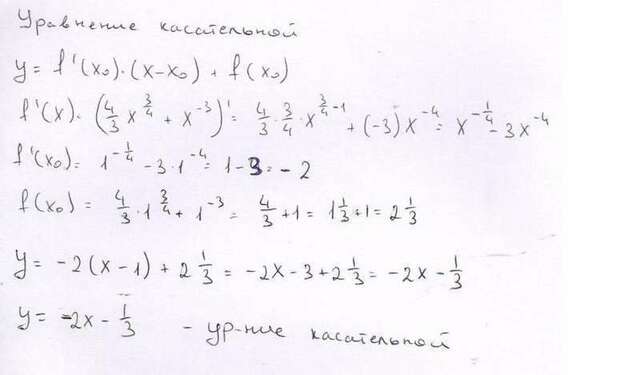 Уравнение касательной
y = f'(x₀)·(x-x₀) + f(x₀)
f'(x) = (4/3 x^(3/4) + x^(-3))' = 4/3 · 3/4 · x^(3/4 - 1) + (-3)x^(-4) = x^(-1/4) - 3x^(-4)
f'(x₀) = 1^(-1/4) - 3·1^(-4) = 1-3 = -2
f(x₀) = 4/3 · 1^(3/4) + 1^(-3) = 4/3 + 1 = 1 1/3 + 1 = 2 1/3
y = -2(x-1) + 2 1/3 = -2x - 3 + 2 1/3 = -2x - 1/3
y = -2x - 1/3 - ур-ние касательной